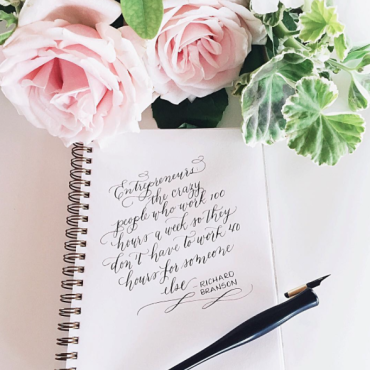 Entrepreneurs
the crazy
people who work 100
hours a week so they
don't have to work 40
hours for someone
else - RICHARD
BRANSON